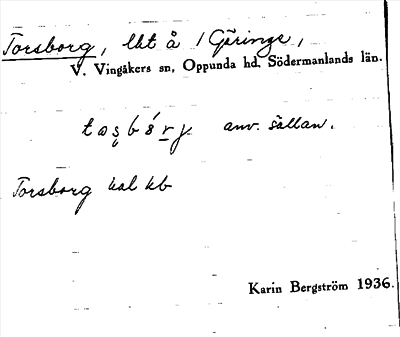 Torsborg, lht å 1 Göringe,
V. Vingåkers sn, Oppunda hd, Södermanlands län.
anv. sällan.
Torsborg hal kb
Karin Bergström 1936.